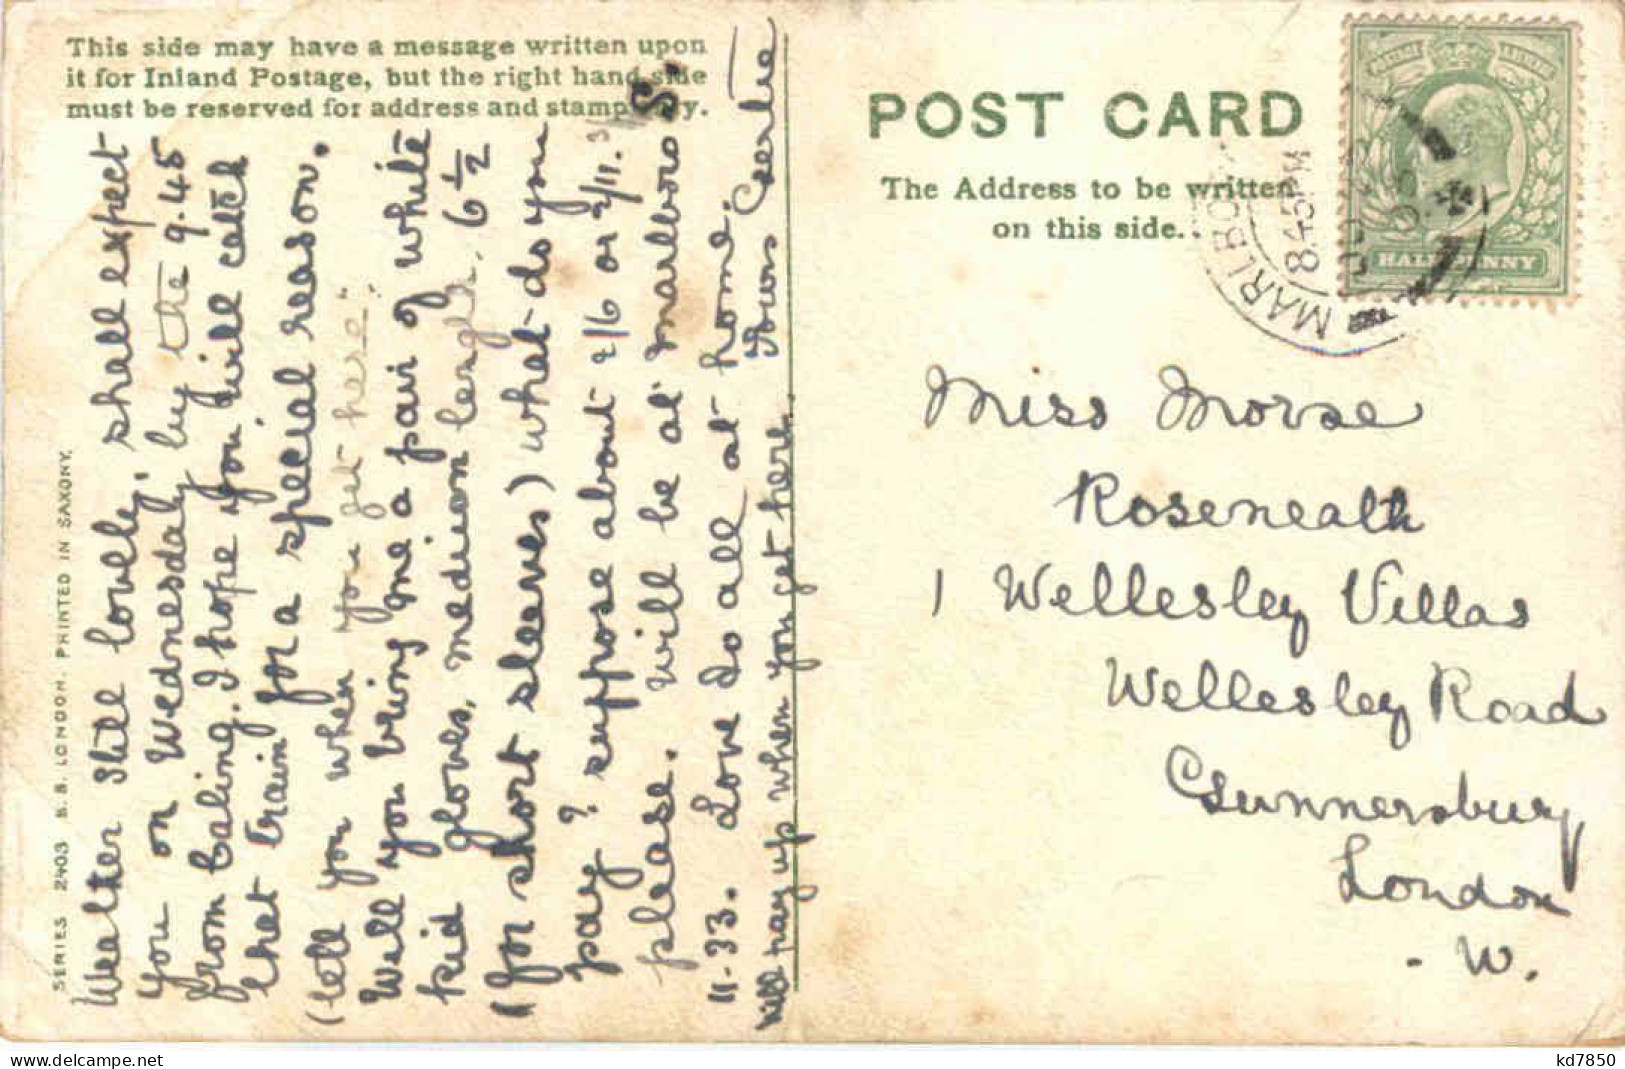 This side may have a message written upon
it for Inland Postage, but the right hand side
must be reserved for address and stamp only.
Weather still lovely, shall expect
you on Wednesday by the 9.45
from Ealing. I hope you will catch
that train for a special reason.
(tell you when you get here".
Will you bring me a pair of white
kid gloves, medium length, 6½
(for short sleeves) what do you
pay? suppose about 2/6 or 2/11.
please. Will be at Marlboro S.
11-33. Love to all at home.
Will pay up when you get here. Yours Gertie
SERIES 2403 S.B. LONDON. PRINTED IN SAXONY.
POST CARD
The Address to be written
on this side.
MARLBORO
845PM
HALFPENNY
Miss Morse
Roseneath
1 Wellesley Villas
Wellesley Road
Gunnersbury
London
- W.
kd7850